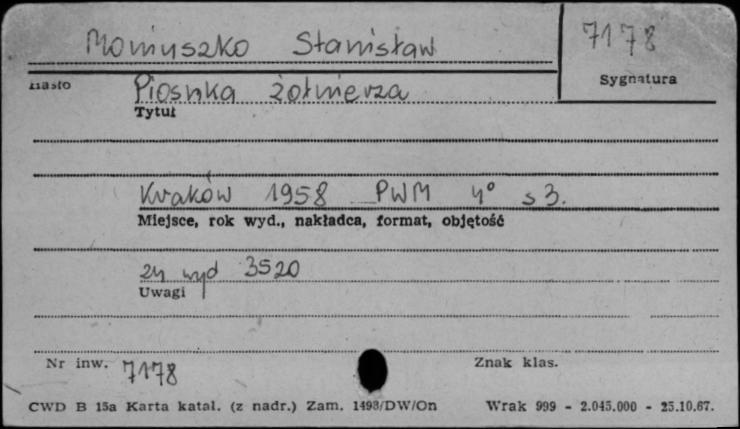 Moniuszko Stanisław 7178
Sygnatura
hasło
Piosnka żołnierza
Tytuł
Kraków 1958 PWM 4° s 3.
Miejsce, rok wyd., nakładca, format, objętość
wyd 3520
Uwagi
Nr inw. 7178 Znak klas.
CWD B 15a Karta katal. (z nadr.) Zam. 1493/DW/On Wrak 999 - 2.045.000 - 25.10.67.